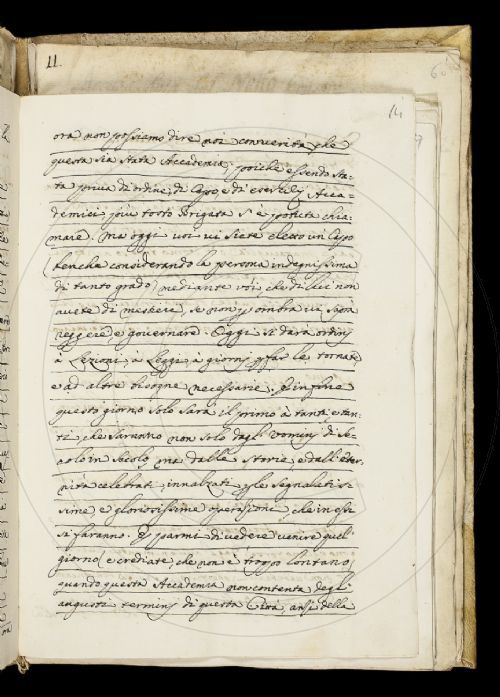 11.
60
14
ora non possiamo dire noi con verità che
questa sia stata Accademia, poiche essendo sta-
ta priva di ordine, di Capo, e di esercitij Acca-
demici più tosto Brigata s'è potuta chia-
mare. Ma oggi voi vi siete eletto un Capo
(benche considerando la persona indegnissima
di tanto grado) mediante voi, che di chi non
avete di mestiere, se non p ombra vi sapia
reggere, e governare. Oggi si darà ordine
à Lezioni, à Leggi, à giorni p far le tornate,
e ad altre bisogne necessarie. In fine
questo giorno solo sarà il primo à tanti, e tan-
ti, che saranno non solo dagli uomini di Se-
colo in Secolo, ma dalle Storie, e dall'eter-
nità celebrati, innalzati p le segnalatis-
sime, e gloriosissime operazioni, che in essi
si faranno. E parmi di vedere venire quel
giorno (e crediate che non è troppo lontano)
quando questa Accademia non contenta degli
angusti termini di questa Città, anzi della